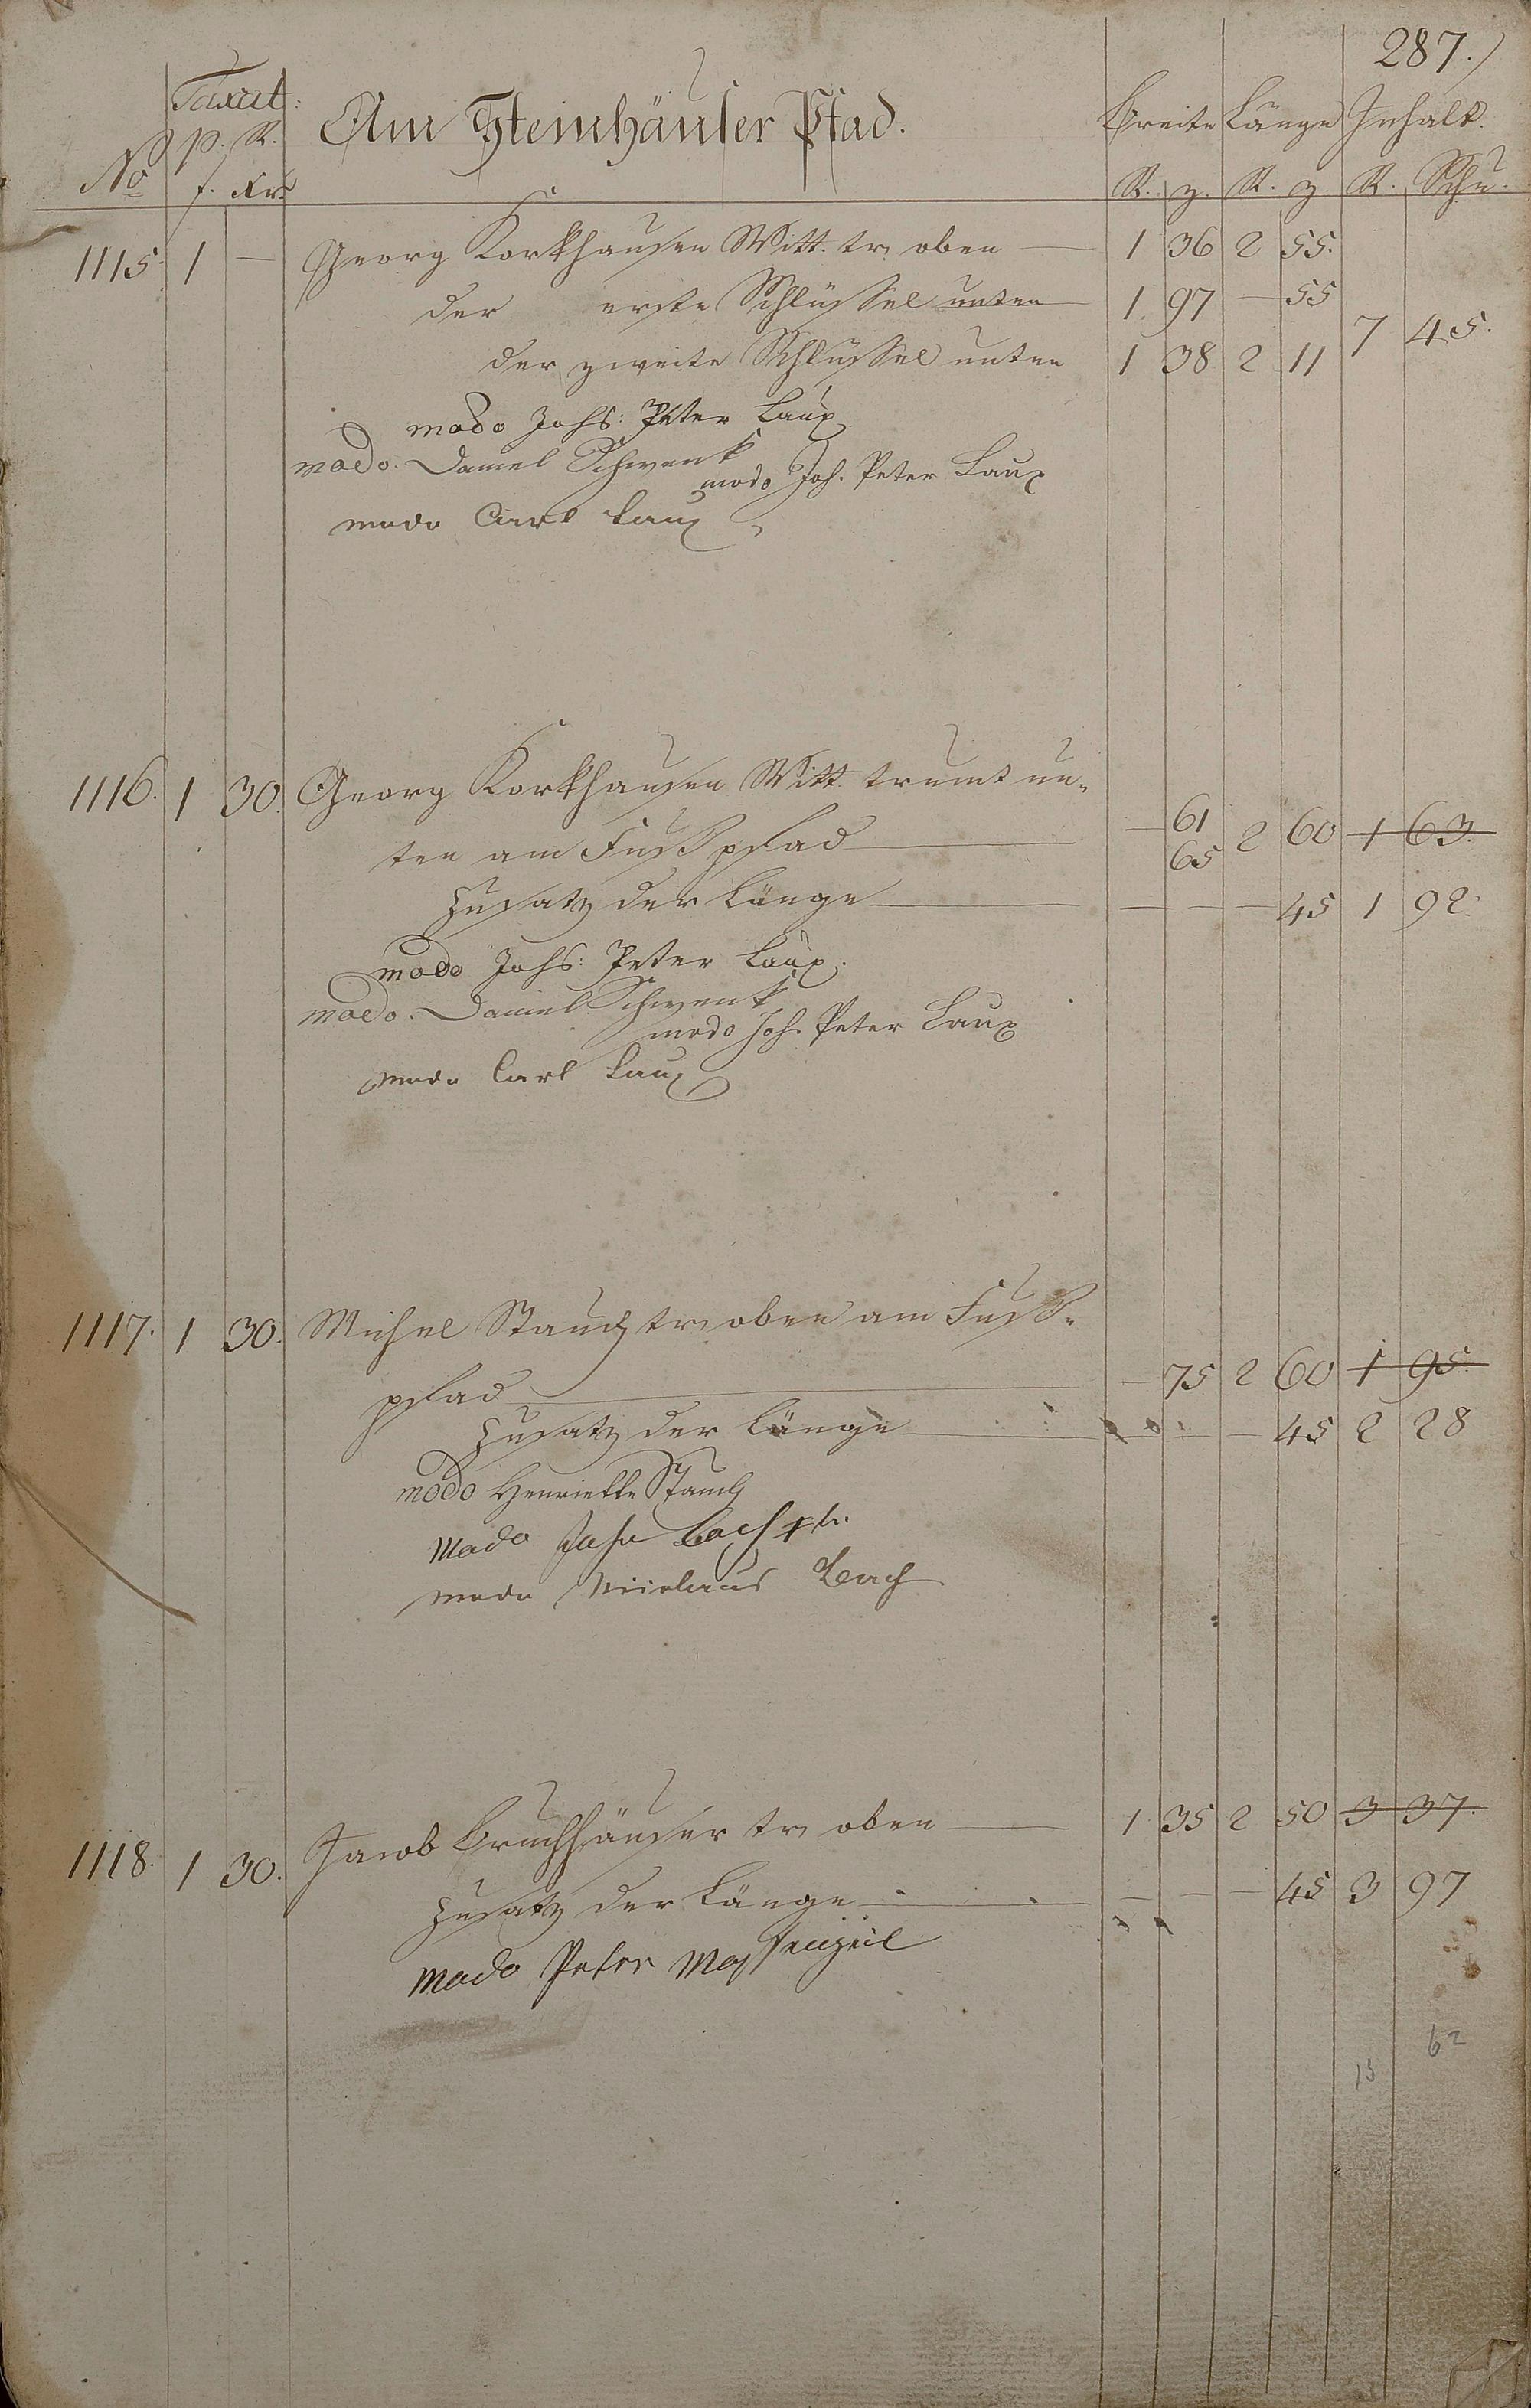 287.
Taxat:
No p. R. Am Steinhäuser Pfad. Breite Länge Inhalt.
f. Kr. R. z. R. z. R. Schu.
1115. 1 — Georg Korkhausen Witt. tr. oben — 1 36 2 55.
der erste Schlüssel unten — 1. 97 — 55
7 45.
der zweite Schlüssel unten 1 38 2 11
modo Johs: Peter Laux
modo. Daniel Schwenk
modo Joh. Peter Laux
modo Carl Laux
1116. 1 30. Georg Korkhausen Witt. trumt un-
ten am Fußpfad — — 61 2 60 1 63.
65
Zusatz der Länge — — — — 45 1 92.
modo Johs: Peter Laux.
modo. Daniel Schwenk
modo Joh. Peter Laux
modo Carl Laux
1117. 1 30. Michel Stauch tr. oben am Fuß-
pfad — — 75 2 60 1 95.
Zusatz der Länge — — — — 45 2 28
modo Henriette Stauch
modo John Bach
modo Nicolaus Bach
1118. 1 30. Jacob Bruchhäuser tr. oben — 1 35 2 50 3 37.
Zusatz der Länge — — — — 45 3 97
modo Peter
62
15